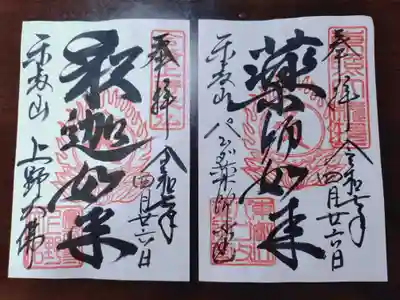 奉拝 令和七年
四月廿六日
薬師如来
東叡山 パゴダ薬師
奉拝 令和七年
四月廿六日
釈迦如来
東叡山 上野大佛